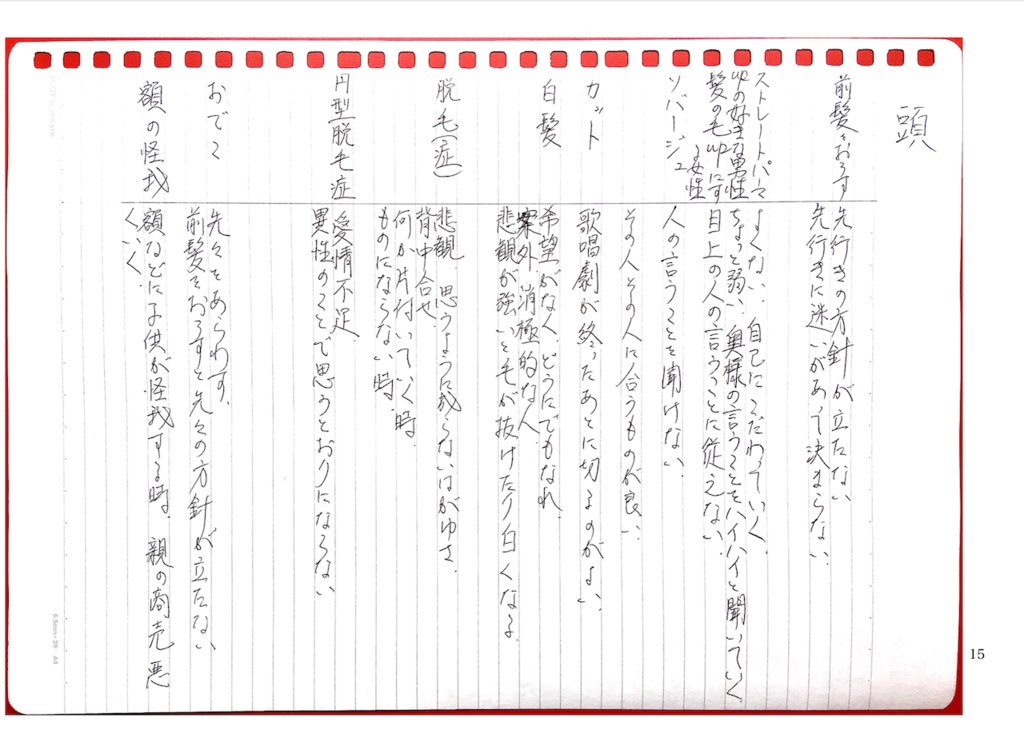 頭
前髪をおろす 先行きの方針が立たない
先行きに迷いがあって決まらない、
ストレートパーマ よくない、自己にこだわっていく、
upの好きな男性 ちょっと弱い、奥様の言うことをハイハイと聞いていく
髪の毛upにす 目上の人の言うことに従えない、
る女性
ソバージュ 人の言うことを聞けない、
その人その人に合うものが良い、
カット 歌唱劇が終ったあとに切るのがよい、
白髪 希望がなく、どうにでもなれ、
案外、消極的な人、
悲観が強いと毛が抜けたり白くなる、
脱毛(症) 悲観、思うように成らないはがゆさ、
背中合せ
何か片付いていく時
ものにならない時、
円型脱毛症 愛情不足
異性のことで思うとおりにならない
おでこ 先々をあらわす、
前髪をおろすと先々の方針が立たない
額の怪我 額などに子供が怪我する時、親の商売悪
くいく、
15